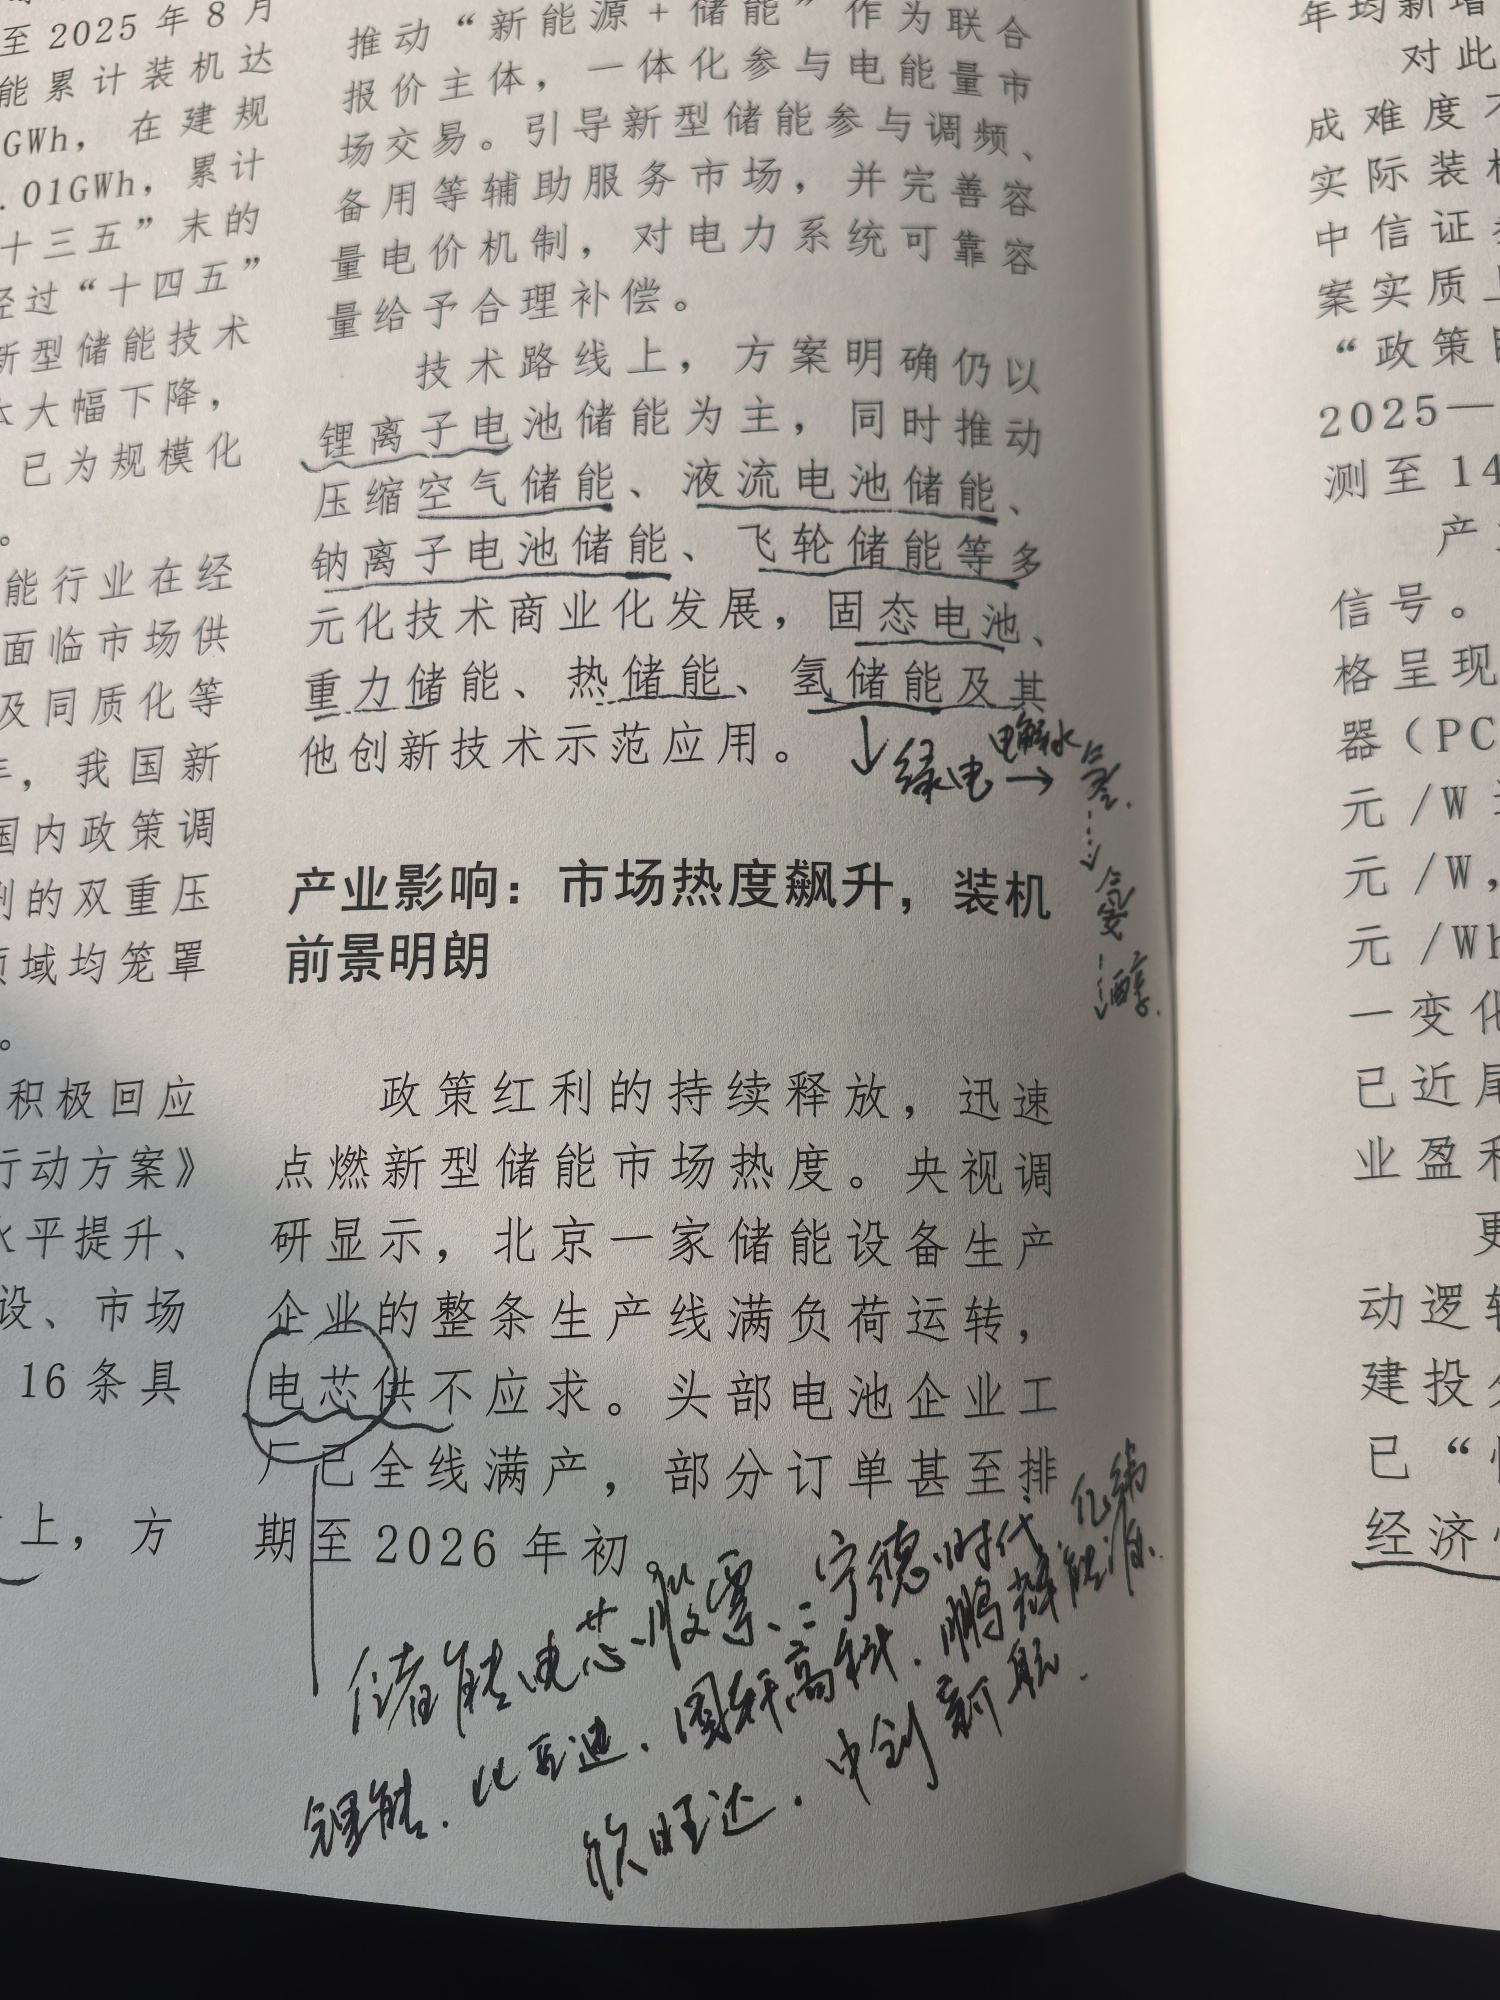 至 2025 年 8 月
能累计装机达
GWh，在建规
.01GWh，累计
十三五”末的
经过“十四五”
新型储能技术
本大幅下降，
已为规模化
。
能行业在经
面临市场供
及同质化等
年，我国新
国内政策调
利的双重压
领域均笼罩
。
积极回应
行动方案》
水平提升、
设、市场
16 条具
上，方
推动“新能源 + 储能”作为联合
报价主体，一体化参与电能量市
场交易。引导新型储能参与调频、
备用等辅助服务市场，并完善容
量电价机制，对电力系统可靠容
量给予合理补偿。
技术路线上，方案明确仍以
锂离子电池储能为主，同时推动
压缩空气储能、液流电池储能、
钠离子电池储能、飞轮储能等多
元化技术商业化发展，固态电池、
重力储能、热储能、氢储能及其
他创新技术示范应用。
↓绿电 电解水 → 氢.
氨
醇.
产业影响：市场热度飙升，装机
前景明朗
政策红利的持续释放，迅速
点燃新型储能市场热度。央视调
研显示，北京一家储能设备生产
企业的整条生产线满负荷运转，
电芯供不应求。头部电池企业工
厂已全线满产，部分订单甚至排
期至 2026 年初。
储能电芯股票：宁德时代、亿纬
锂能.比亚迪.国轩高科.鹏辉能源.
欣旺达.中创新航.
年均新增
对此
成难度不
实际装机
中信证券
案实质上
“政策目
2025—
测至 14
产业
信号。
格呈现
器（PC
元 /W
元 /W，
元 /Wh
一变化
已近尾
业盈利
更
动逻辑
建投
已“
经济